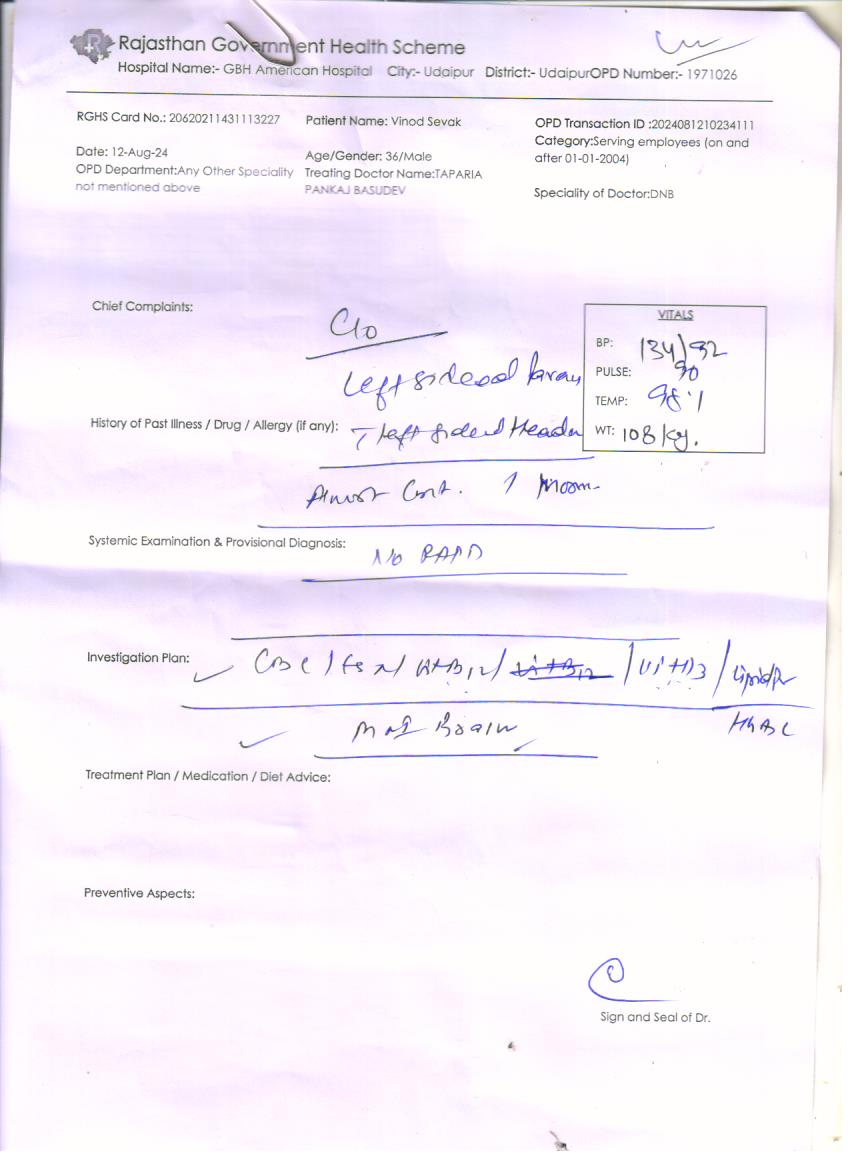 Rajasthan Government Health Scheme
Hospital Name:- GBH American Hospital City:- Udaipur District:- UdaipurOPD Number:- 1971026
RGHS Card No.: 20620211431113227 Patient Name: Vinod Sevak OPD Transaction ID :2024081210234111
Category:Serving employees (on and after 01-01-2004)
Date: 12-Aug-24 Age/Gender: 36/Male
OPD Department:Any Other Speciality not mentioned above Treating Doctor Name:TAPARIA PANKAJ BASUDEV
Speciality of Doctor:DNB
Chief Complaints: C/o
Left sided
VITALS
BP: 134/92
PULSE: 90
TEMP: 98.1
WT: 108 kg.
History of Past Illness / Drug / Allergy (if any): left sided Heada
Systemic Examination & Provisional Diagnosis: No RAPD
Investigation Plan: CBC / / Vit B12 / Vit B12 / Vit D3 / Lipid Pr
HbA1C
MRI Brain
Treatment Plan / Medication / Diet Advice:
Preventive Aspects:
Sign and Seal of Dr.